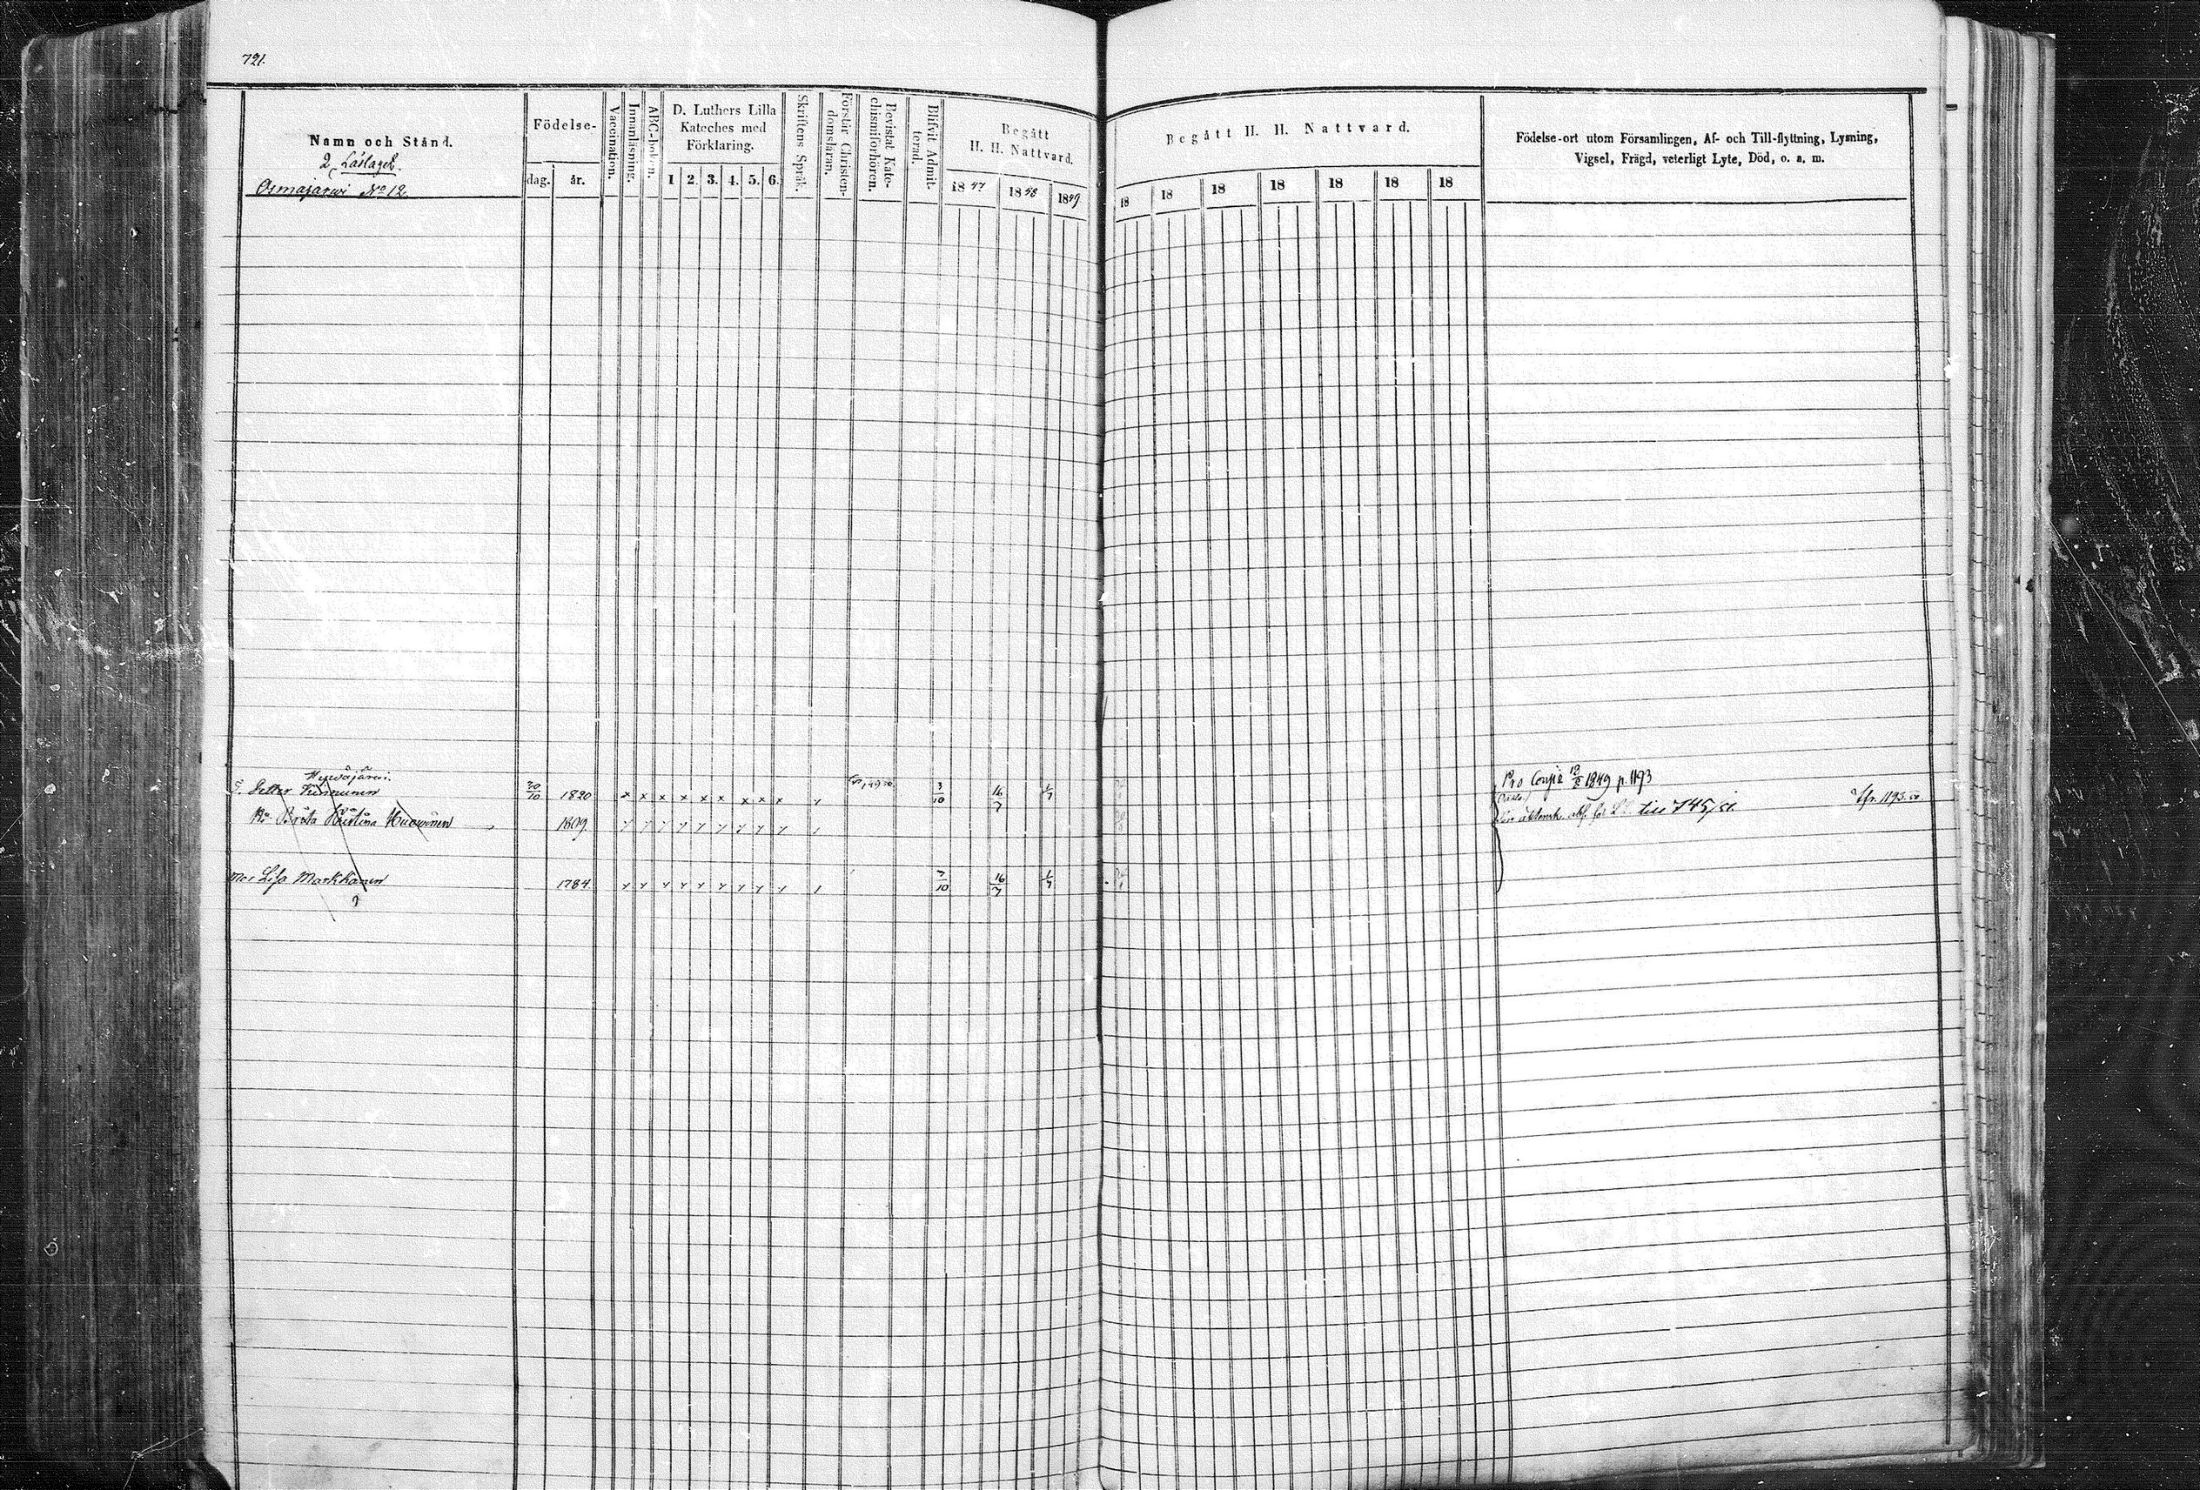 721.
Namn och Stånd.
2 Läslaget.
Osmajärwi No 12.
Födelse-
dag. år.
Vaccination.
Innanläsning.
ABC-boken.
D. Luthers Lilla
Kateches med
Förklaring.
1 2. 3. 4. 5. 6.
Skriftens Språk.
Förstår Christen-
domsläran.
Bevistat Kate-
chismiförhören.
Blifvit Admit-
terad.
Begått
H. H. Nattvard.
1847 1848 1849
Begått H. H. Nattvard.
18 18 18 18 18 18 18
Födelse-ort utom Församlingen, Af- och Till-flyttning, Lysning,
Vigsel, Frägd, veterligt Lyte, Död, o. s. m.
Petter 30/10 1820 x x x x x x x x x 3/10 16/7
Pro 1849 p. 1193
Brita Kristina Huowinen 1809
till 745,
1193
Lisa Markkanen 1784 3/10 16/7